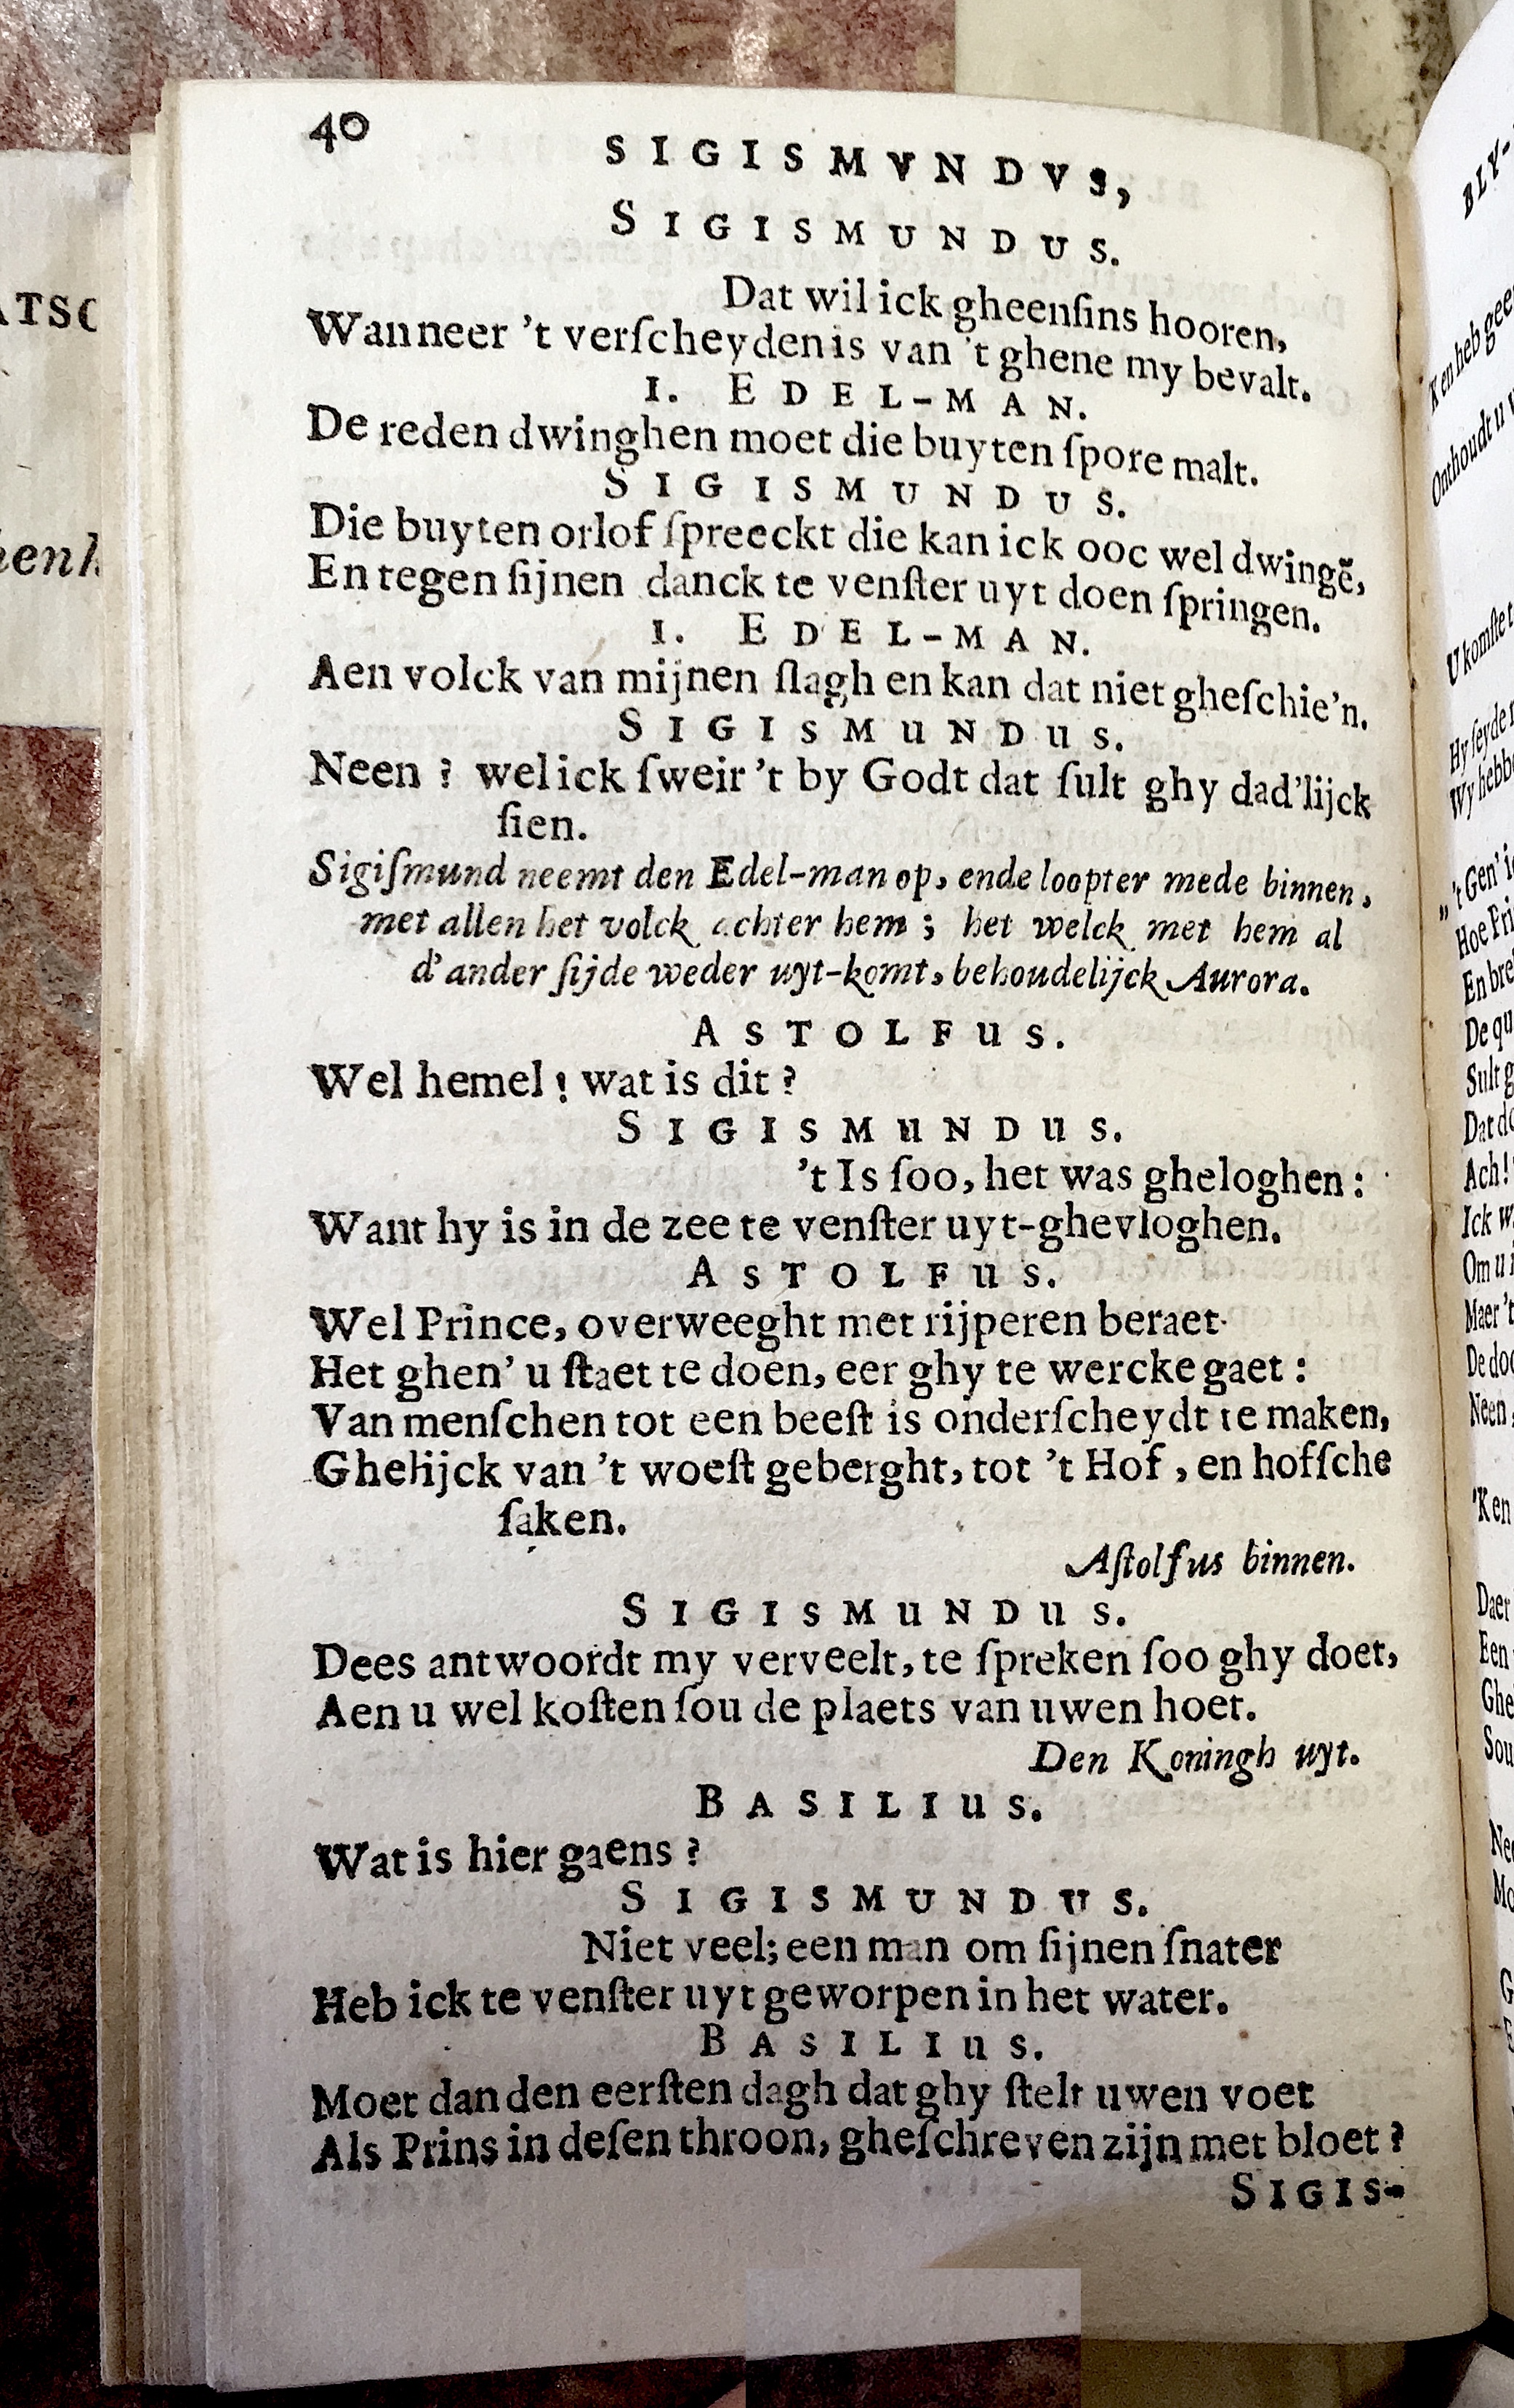 40
SIGISMVNDVS,
SIGISMUNDUS.
Dat wil ick gheenſins hooren,
Wanneer 't verſcheyden is van 't ghene my bevalt.
1. EDEL-MAN.
De reden dwinghen moet die buyten ſpore malt.
SIGISMUNDUS.
Die buyten orlof ſpreeckt die kan ick ooc wel dwingē,
En tegen ſijnen danck te venſter uyt doen ſpringen.
1. EDEL-MAN.
Aen volck van mijnen ſlagh en kan dat niet gheſchie'n.
SIGISMUNDUS.
Neen ? wel ick ſweir 't by Godt dat ſult ghy dad'lijck
ſien.
Sigiſmund neemt den Edel-man op, ende loopter mede binnen,
met allen het volck achter hem ; het welck met hem al
d'ander ſijde weder uyt-komt, behoudelijck Aurora.
ASTOLFUS.
Wel hemel ! wat is dit ?
SIGISMUNDUS.
't Is ſoo, het was gheloghen :
Want hy is in de zee te venſter uyt-ghevloghen.
ASTOLFUS.
Wel Prince, overweeght met rijperen beraet
Het ghen' u ſtaet te doen, eer ghy te wercke gaet :
Van menſchen tot een beeſt is onderſcheydt te maken,
Ghelijck van 't woeſt geberght, tot 't Hof, en hofſche
ſaken.
Aſtolfus binnen.
SIGISMUNDUS.
Dees antwoordt my verveelt, te ſpreken ſoo ghy doet,
Aen u wel koſten ſou de plaets van uwen hoet.
Den Koningh uyt.
BASILIUS.
Wat is hier gaens ?
SIGISMUNDUS.
Niet veel; een man om ſijnen ſnater
Heb ick te venſter uyt geworpen in het water.
BASILIUS.
Moet dan den eerſten dagh dat ghy ſtelt uwen voet
Als Prins in deſen throon, gheſchreven zijn met bloet ?
SIGIS-